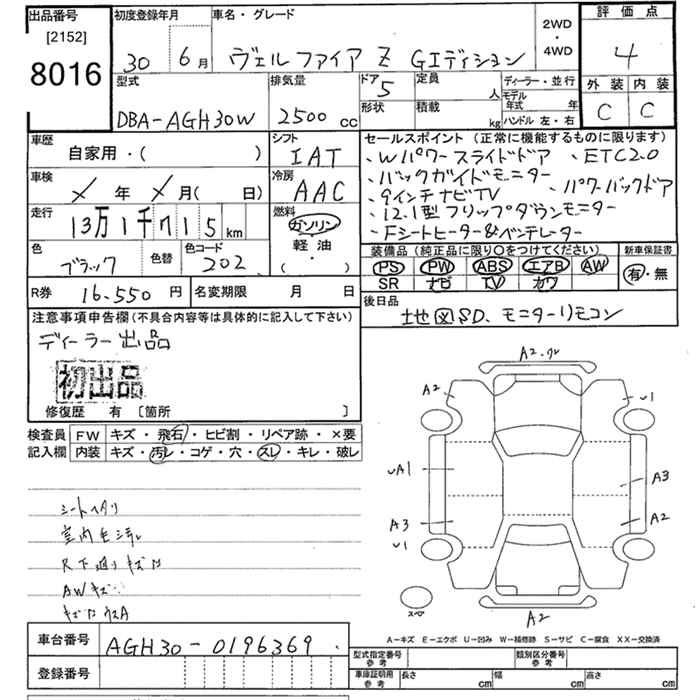 出品番号 初度登録年月 車名・グレード 評価点
[2152] 2WD
8016 30 6月 ヴェルファイア Z Gエディション ・ 4
4WD
型式 排気量 ドア 定員 ディーラー・並行 外装 内装
DBA-AGH30W 2500cc 5 人 モデル年式 年 C C
形状 積載 kg ハンドル 左・右
車歴 シフト セールスポイント (正常に機能するものに限ります)
自家用・( ) IAT ・Wパワースライドドア ・ETC2.0
車検 冷房 ・バックガイドモニター
✓年 ✓月( 日) AAC ・9インチナビTV ・パワーバックドア
走行 燃料 ・12.1型フリップダウンモニター
13万1千715km ガソリン ・Fシートヒーター&ベンチレーター
軽油
( ・ )
色 色替 色コード 装備品 (純正品に限り○をつけてください) 新車保証書
ブラック 202 PS PW ABS エアB AW 有・無
SR ナビ TV カワ
R券 16.550円 名変期限 月 日 後日品
地図SD、モニターリモコン
注意事項申告欄(不具合内容等は具体的に記入して下さい)
ディーラー出品
初出品
修復歴 有 〔箇所 〕
検査員 FW キズ・飛石・ヒビ割・リペア跡・×要
記入欄 内装 キズ・汚レ・コゲ・穴・スレ・キレ・破レ
シートヘタリ
AWキズ
A2
A2 U1
A1 A3
A3 A2
U1
A2
A-キズ E-エクボ U-凹み W-補修跡 S-サビ C-腐食 XX-交換済
車台番号 AGH30-0196369
登録番号
型式指定番号 参考 類別区分番号 参考
車庫証明用 参考 長さ cm 幅 cm 高さ cm